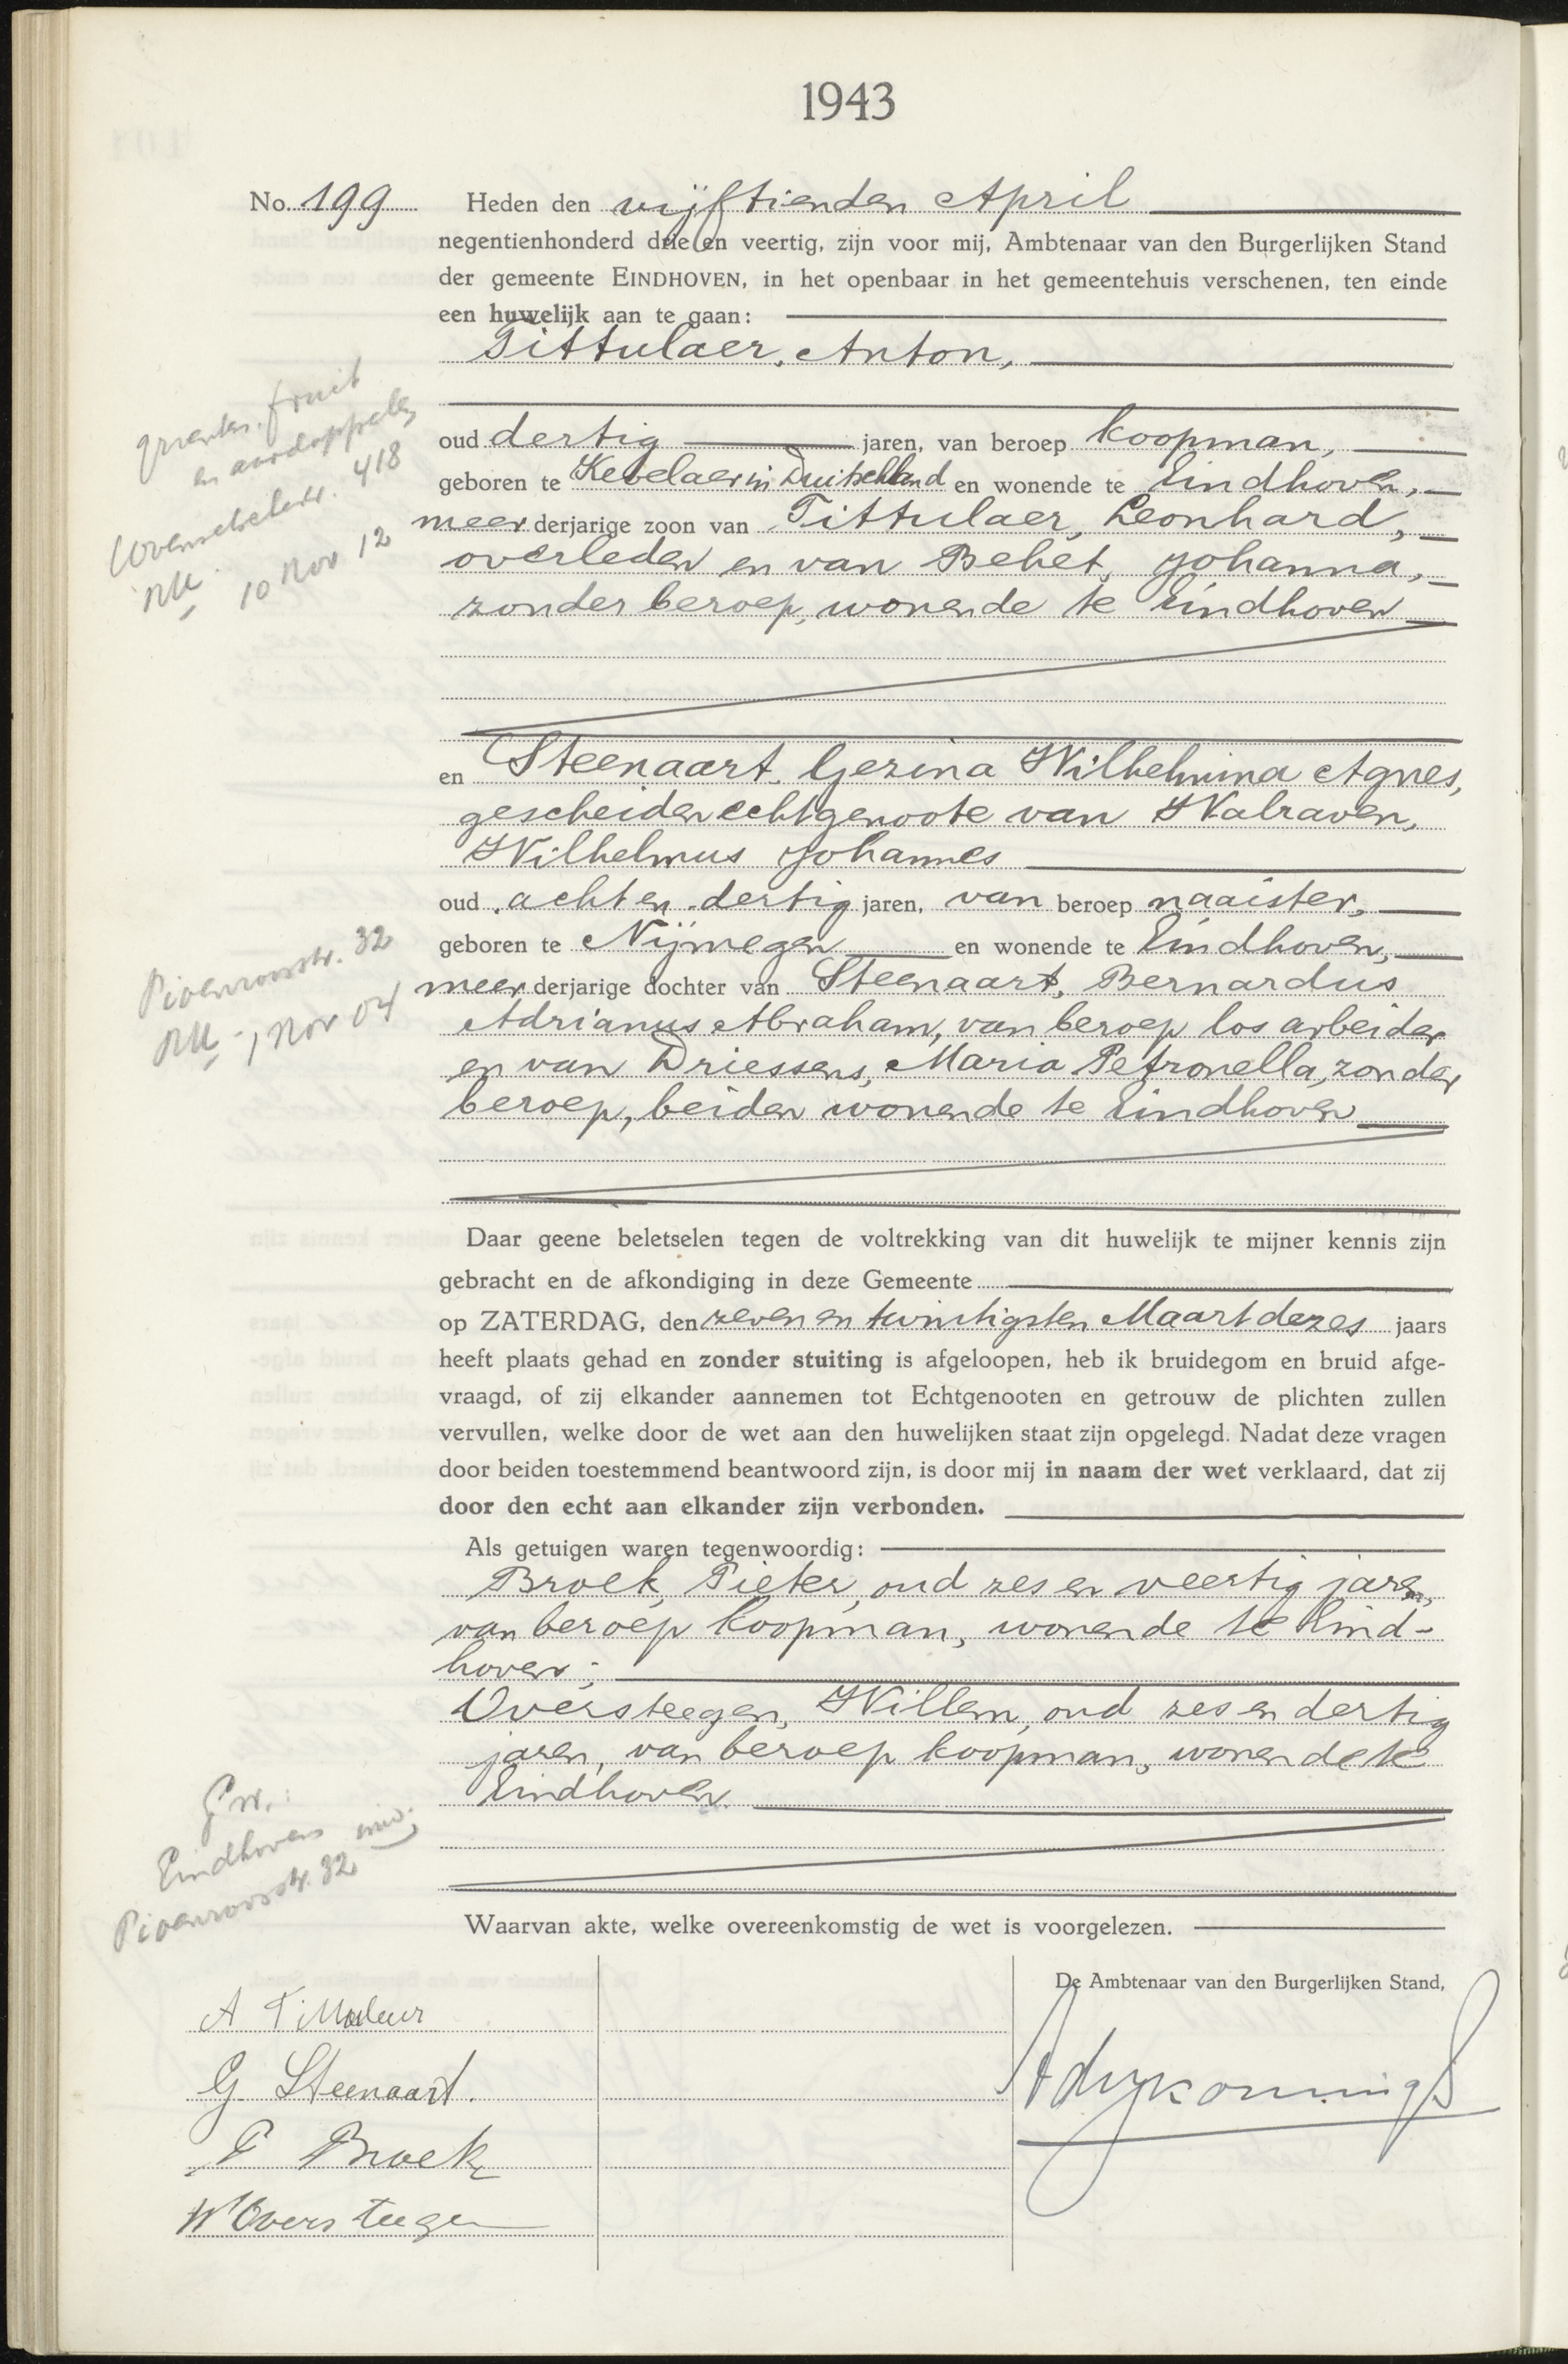 1943
No. 199 Heden den vijftienden April
negentienhonderd drie en veertig, zijn voor mij, Ambtenaar van den Burgerlijken Stand
der gemeente EINDHOVEN, in het openbaar in het gemeentehuis verschenen, ten einde
een huwelijk aan te gaan:
Tittulaer, Anton,
groenten. fruit
en aardappelen
418
RK 10 Nov 12
oud dertig jaren, van beroep koopman,
geboren te Kevelaer in Duitschland en wonende te Eindhoven,
meerderjarige zoon van Tittulaer, Leonhard,
overleden en van Behet, Johanna,
zonder beroep, wonende te Eindhoven
en Steenaart, Gezina Wilhelmina Agnes,
gescheiden echtgenoote van Walraven,
Wilhelmus Johannes
oud acht en dertig jaren, van beroep naaister,
geboren te Nijmegen en wonende te Eindhoven,
meerderjarige dochter van Steenaart, Bernardus
Adrianus Abraham, van beroep los arbeider
en van Driessens, Maria Petronella, zonder
beroep, beiden wonende te Eindhoven
Pioenroosstr. 32
RK - 1 Nov 04
Daar geene beletselen tegen de voltrekking van dit huwelijk te mijner kennis zijn
gebracht en de afkondiging in deze Gemeente
op ZATERDAG, den zeven en twintigsten Maart dezes jaars
heeft plaats gehad en zonder stuiting is afgeloopen, heb ik bruidegom en bruid afge-
vraagd, of zij elkander aannemen tot Echtgenooten en getrouw de plichten zullen
vervullen, welke door de wet aan den huwelijken staat zijn opgelegd. Nadat deze vragen
door beiden toestemmend beantwoord zijn, is door mij in naam der wet verklaard, dat zij
door den echt aan elkander zijn verbonden.
Als getuigen waren tegenwoordig:
Broek, Pieter, oud zes en veertig jaren,
van beroep koopman, wonende te Eind-
hoven;
Oversteegen, Willem, oud zes en dertig
jaren, van beroep koopman, wonende te
Eindhoven.
Eindhoven
Pioenroosstr. 32
Waarvan akte, welke overeenkomstig de wet is voorgelezen.
De Ambtenaar van den Burgerlijken Stand,
A Tittulaer
G. Steenaart.
P Broek
W Oversteegen